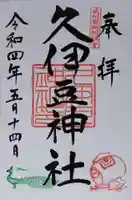 奉拝
久伊豆神社
令和四年五月十四日